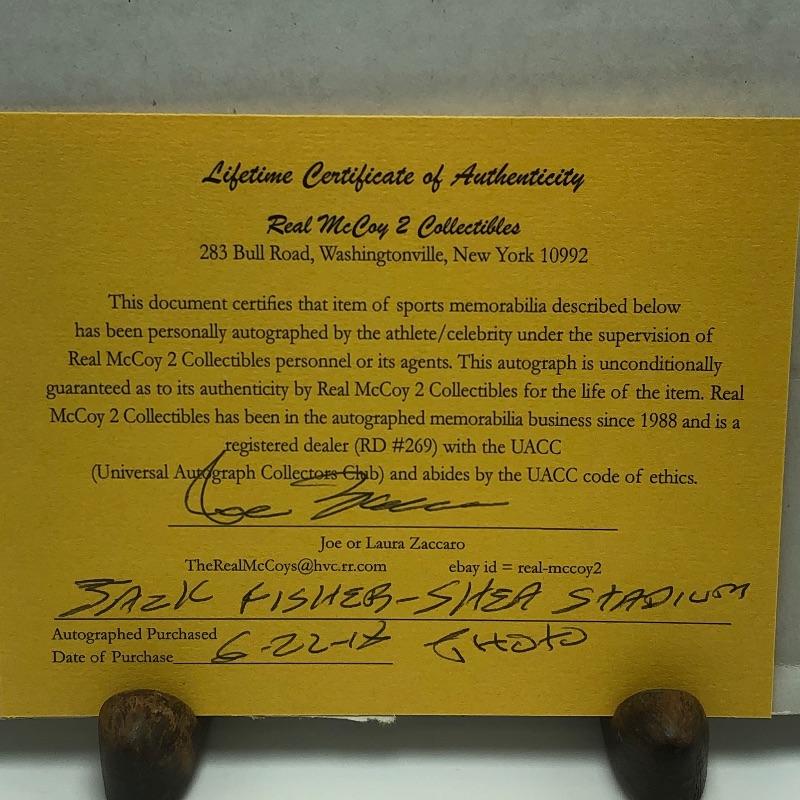 Lifetime Certificate of Authenticity
Real McCoy 2 Collectibles
283 Bull Road, Washingtonville, New York 10992
This document certifies that item of sports memorabilia described below
has been personally autographed by the athlete/celebrity under the supervision of
Real McCoy 2 Collectibles personnel or its agents. This autograph is unconditionally
guaranteed as to its authenticity by Real McCoy 2 Collectibles for the life of the item. Real
McCoy 2 Collectibles has been in the autographed memorabilia business since 1988 and is a
registered dealer (RD #269) with the UACC
(Universal Autograph Collectors Club) and abides by the UACC code of ethics.
Joe or Laura Zaccaro
TheRealMcCoys@hvc.rr.com ebay id = real-mccoy2
JACK FISHER-SHEA STADIUM
Autographed Purchased
PHOTO
Date of Purchase